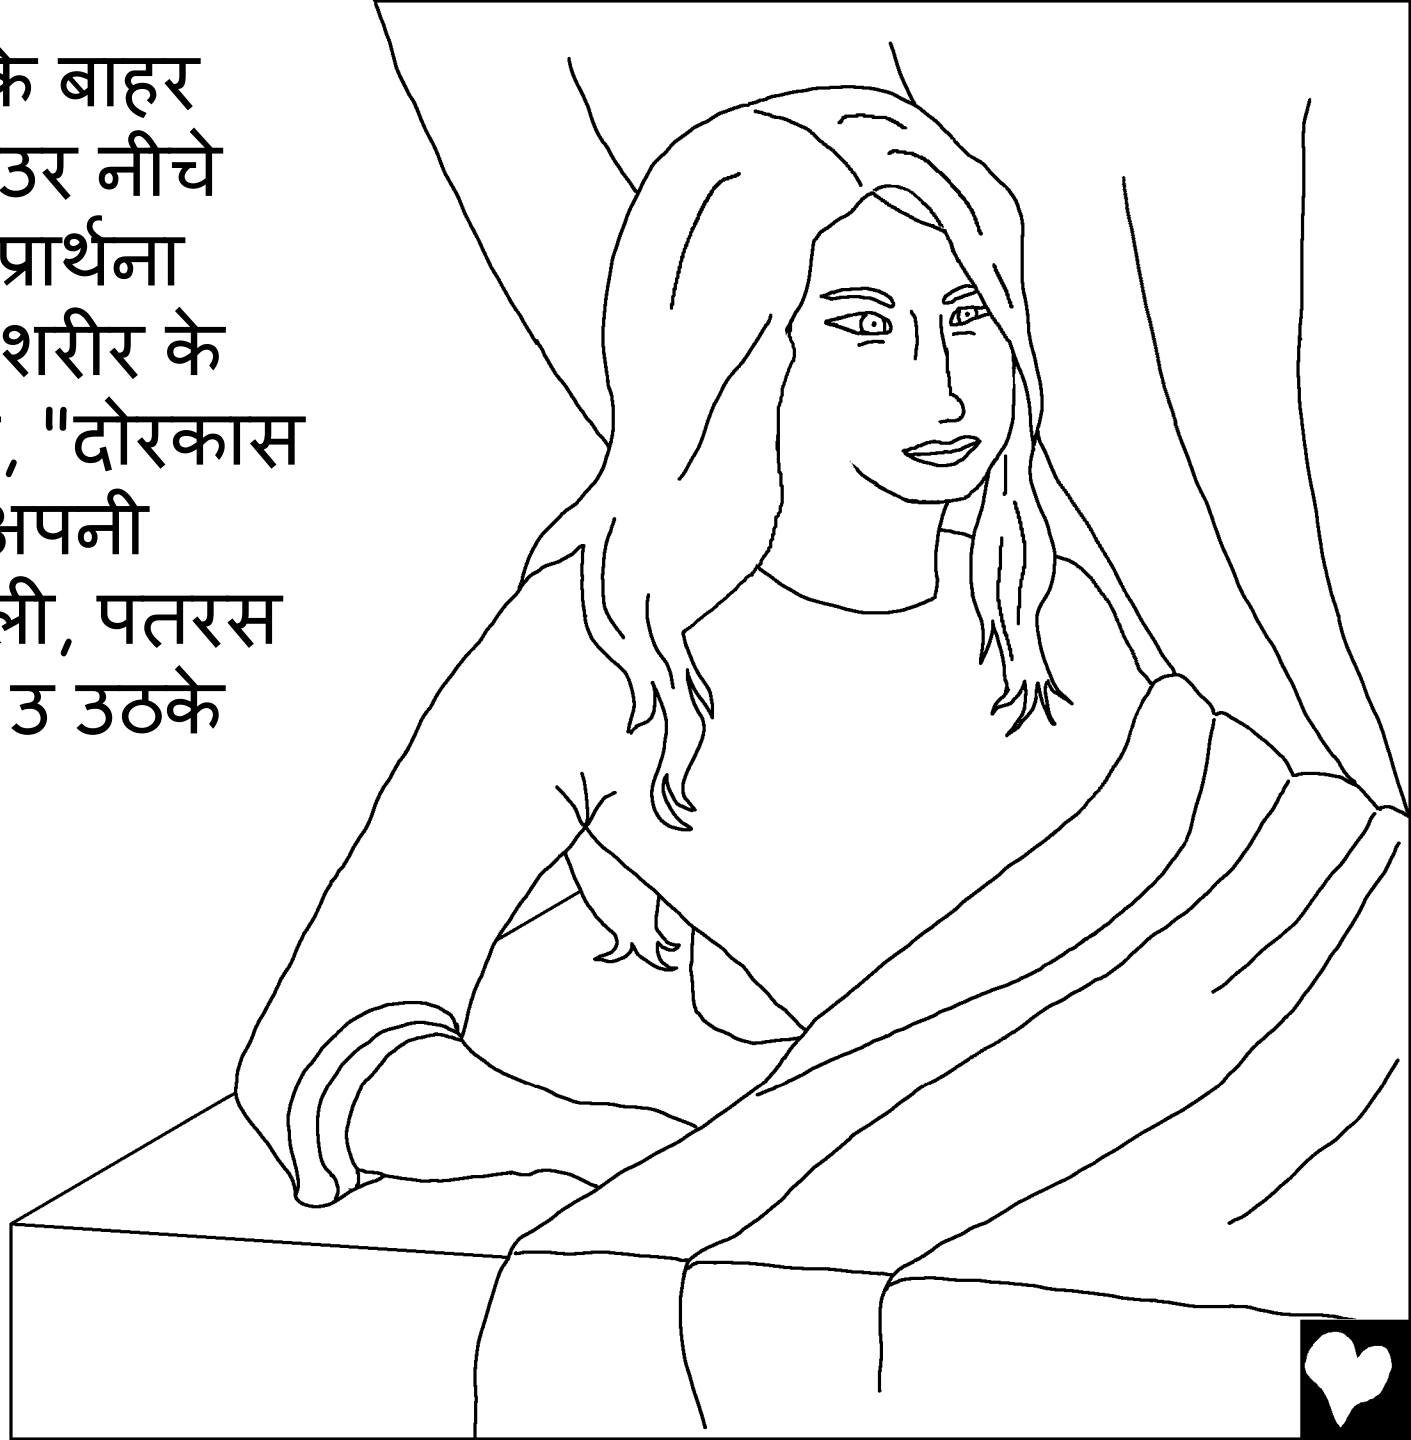 के बाहर
उर नीचे
प्रार्थना
शरीर के
, "दोरकास
अपनी
पतरस
उ उठके